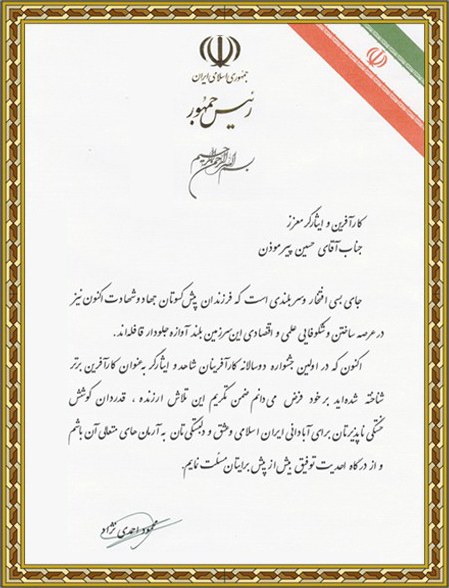 جمهوری اسلامی ایران
رئیس جمهور
بسم الله الرحمن الرحیم
کارآفرین و ایثارگر معزز
جناب آقای حسین پیرموذن
جای بسی افتخار و سربلندی است که فرزندان پیش کسوتان جهاد و شهادت اکنون نیز
در عرصه ساختن و شکوفایی علمی و اقتصادی این سرزمین بلند آوازه جلودار قافله اند.
اکنون که در اولین جشنواره دوسالانه کارآفرینان شاهد و ایثارگر به عنوان کارآفرین برتر
شناخته شده اید بر خود فرض می دانم ضمن تکریم این تلاش ارزنده ، قدردان کوشش
خستگی ناپذیرتان برای آبادانی ایران اسلامی و عشق و دلبستگی تان به آرمان های متعالی آن باشم
و از درگاه احدیت توفیق بیش از پیش برایتان مسئلت نمایم.
محمود احمدی نژاد